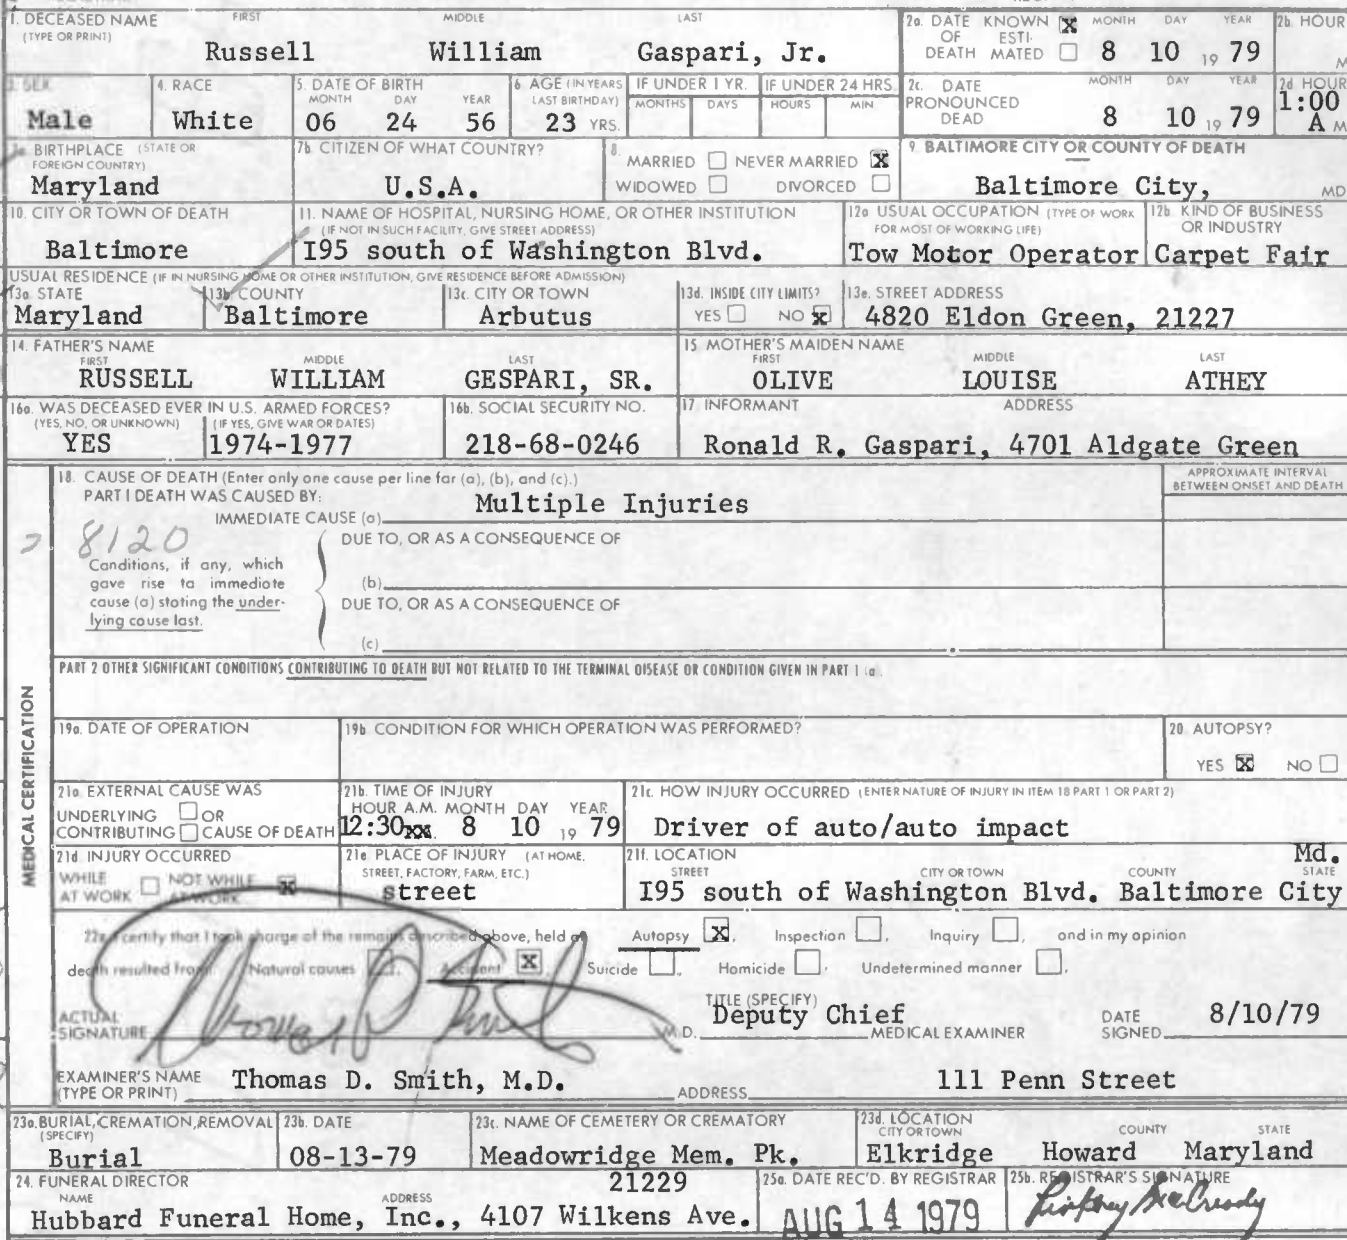 1. DECEASED NAME FIRST MIDDLE LAST
(TYPE OR PRINT)
Russell William Gaspari, Jr.
2a. DATE KNOWN X MONTH DAY YEAR
OF ESTI-
DEATH MATED 8 10 19 79
2b. HOUR
M
3. SEX
Male
4. RACE
White
5. DATE OF BIRTH
MONTH DAY YEAR
06 24 56
6. AGE (IN YEARS
LAST BIRTHDAY)
23 YRS.
IF UNDER 1 YR.
MONTHS DAYS
IF UNDER 24 HRS.
HOURS MIN
2c. DATE MONTH DAY YEAR
PRONOUNCED
DEAD 8 10 19 79
2d. HOUR
1:00
A M
BIRTHPLACE (STATE OR
FOREIGN COUNTRY)
Maryland
7b. CITIZEN OF WHAT COUNTRY?
U.S.A.
8.
MARRIED NEVER MARRIED X
WIDOWED DIVORCED
9. BALTIMORE CITY OR COUNTY OF DEATH
Baltimore City, MD
10. CITY OR TOWN OF DEATH
Baltimore
11. NAME OF HOSPITAL, NURSING HOME, OR OTHER INSTITUTION
(IF NOT IN SUCH FACILITY, GIVE STREET ADDRESS)
I95 south of Washington Blvd.
12a USUAL OCCUPATION (TYPE OF WORK
FOR MOST OF WORKING LIFE)
Tow Motor Operator
12b. KIND OF BUSINESS
OR INDUSTRY
Carpet Fair
USUAL RESIDENCE (IF IN NURSING HOME OR OTHER INSTITUTION, GIVE RESIDENCE BEFORE ADMISSION)
13a. STATE
Maryland
13b. COUNTY
Baltimore
13c. CITY OR TOWN
Arbutus
13d. INSIDE CITY LIMITS?
YES NO X
13e. STREET ADDRESS
4820 Eldon Green, 21227
14. FATHER'S NAME
FIRST MIDDLE LAST
RUSSELL WILLIAM GESPARI, SR.
15 MOTHER'S MAIDEN NAME
FIRST MIDDLE LAST
OLIVE LOUISE ATHEY
16a. WAS DECEASED EVER IN U.S. ARMED FORCES?
(YES, NO, OR UNKNOWN) (IF YES, GIVE WAR OR DATES)
YES 1974-1977
16b. SOCIAL SECURITY NO.
218-68-0246
17. INFORMANT ADDRESS
Ronald R. Gaspari, 4701 Aldgate Green
18. CAUSE OF DEATH (Enter only one cause per line for (a), (b), and (c).)
APPROXIMATE INTERVAL
BETWEEN ONSET AND DEATH
PART I DEATH WAS CAUSED BY:
IMMEDIATE CAUSE (a) Multiple Injuries
8120
DUE TO, OR AS A CONSEQUENCE OF
Conditions, if any, which
gave rise to immediate
cause (a) stating the under-
lying cause last.
(b)
DUE TO, OR AS A CONSEQUENCE OF
(c)
PART 2 OTHER SIGNIFICANT CONDITIONS CONTRIBUTING TO DEATH BUT NOT RELATED TO THE TERMINAL DISEASE OR CONDITION GIVEN IN PART 1 (a).
MEDICAL CERTIFICATION
19a. DATE OF OPERATION
19b. CONDITION FOR WHICH OPERATION WAS PERFORMED?
20. AUTOPSY?
YES X NO
21a. EXTERNAL CAUSE WAS
UNDERLYING OR
CONTRIBUTING CAUSE OF DEATH
21b. TIME OF INJURY
HOUR A.M. MONTH DAY YEAR
12:30 xx. 8 10 19 79
21c. HOW INJURY OCCURRED (ENTER NATURE OF INJURY IN ITEM 18 PART 1 OR PART 2)
Driver of auto/auto impact
21d. INJURY OCCURRED
WHILE NOT WHILE
AT WORK AT WORK X
21e. PLACE OF INJURY (AT HOME,
STREET, FACTORY, FARM, ETC.)
street
21f. LOCATION
STREET CITY OR TOWN COUNTY STATE
Md.
I95 south of Washington Blvd. Baltimore City
22a. I certify that I took charge of the remains described above, held an Autopsy X, Inspection, Inquiry, and in my opinion
death resulted from: Natural causes, Accident X Suicide, Homicide, Undetermined manner.
ACTUAL
SIGNATURE M.D.
TITLE (SPECIFY)
Deputy Chief MEDICAL EXAMINER
DATE
SIGNED 8/10/79
EXAMINER'S NAME
(TYPE OR PRINT) Thomas D. Smith, M.D.
ADDRESS 111 Penn Street
23a. BURIAL, CREMATION, REMOVAL
(SPECIFY)
Burial
23b. DATE
08-13-79
23c. NAME OF CEMETERY OR CREMATORY
Meadowridge Mem. Pk.
23d. LOCATION
CITY OR TOWN COUNTY STATE
Elkridge Howard Maryland
24. FUNERAL DIRECTOR
NAME ADDRESS
21229
Hubbard Funeral Home, Inc., 4107 Wilkens Ave.
25a. DATE REC'D. BY REGISTRAR
AUG 14 1979
25b. REGISTRAR'S SIGNATURE